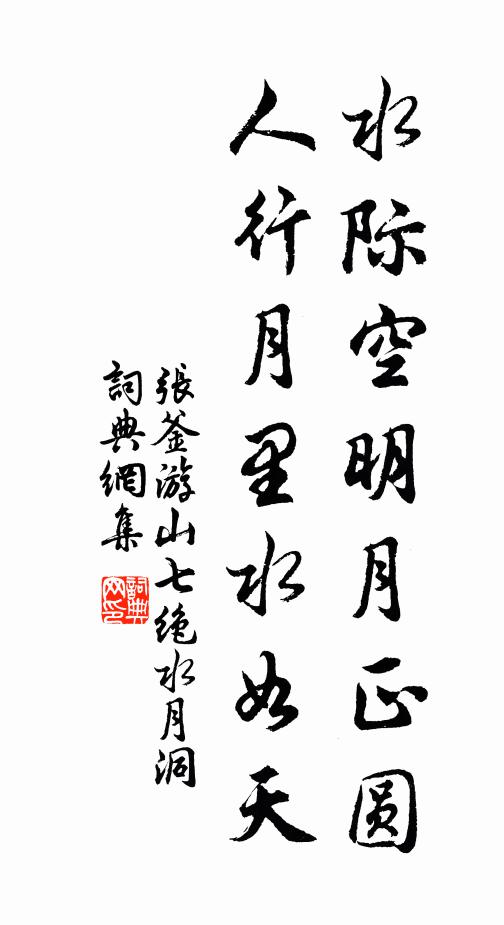 水际空明月正圆
人行月里水如天
張釜游山七绝水月洞
詞典網集
詞典
网印